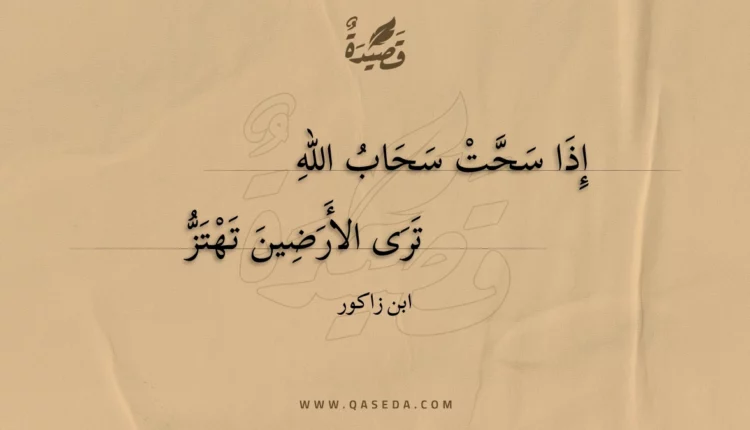 قَصِيدَةٌ
إِذَا سَحَّتْ سَحَابُ اللهِ
تَرَى الأَرَضِينَ تَهْتَزُّ
ابن زاكور
WWW.QASEDA.COM